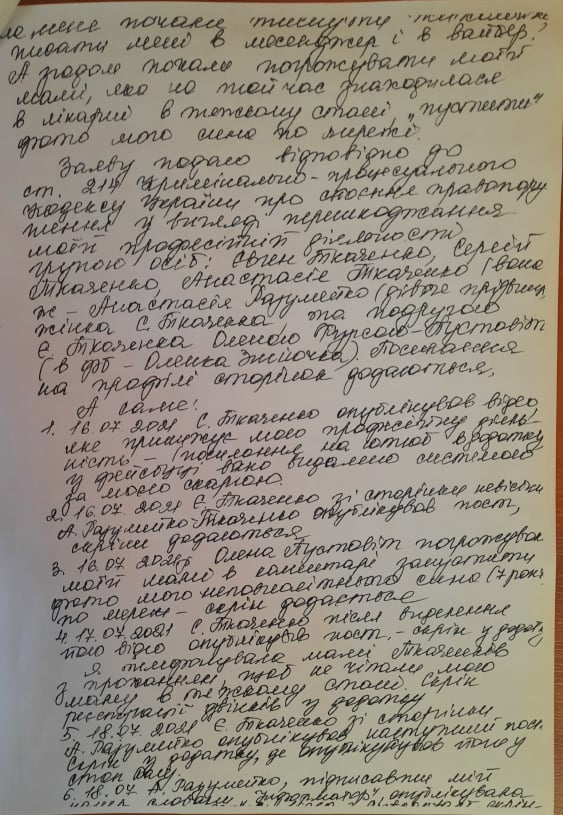 на мене почали тиснути
писати мені в месенджер і в вайбер.
А згодом почали погрожувати моїй
мамі, яка на той час знаходилася
в лікарні в тяжкому стані, „пустити"
фото мого сина по мережі.
Заяву подаю відповідно до
ст. 214 Кримінально-процесуального
Кодексу України про скоєння правопору
шення у вигляді перешкоджання
моїй професійній діяльності
групою осіб: Євген Ткаченко, Сергій
Ткаченко, Анастасія Ткаченко (вона
ж - Анастасія Разумейко (дівоче прізвище)
жінка С. Ткаченка, та подругою
Є. Ткаченка Оленою Фурсою-Пустовіт
(в фб - Оленка Знийочка). Посилання
на профілі сторінок додаються,
А саме:
1. 16.07 2021 Є. Ткаченко опублікував відео,
яке принижує мою професійну діяль-
ність - (посилання на ютюб в додатку,
у фейсбуці вано видалено системою
за моєю скаргою.
2. 16.07 2021 Є. Ткаченко зі сторінки невістки
А. Разумейко-Ткаченко опублікував пост,
скріни додаються
3. 16.07 2021 Олена Пустовіт погрожувала
моїй мамі в коментарі запустити
фото мого неповнолітнього сина (7 рок.
по мережі - скрін додається
4. 17.07 2021 Є. Ткаченко після видалення
його відео опублікував пост - скрін у додатку
Я телефонувала мамі Ткаченків
з проханням, щоб не чіпали мою
маму в тяжкому стані. Скрін
реєстрації дзвінків у додатку
5. 18.07. 2021 Є. Ткаченко зі сторінки
А. Разумейко опублікував наступний пост.
Скрін у додатку, де опублікував
6. 18.07 А. Разумейко, підписавши мій
"Інформатор", опублікувала